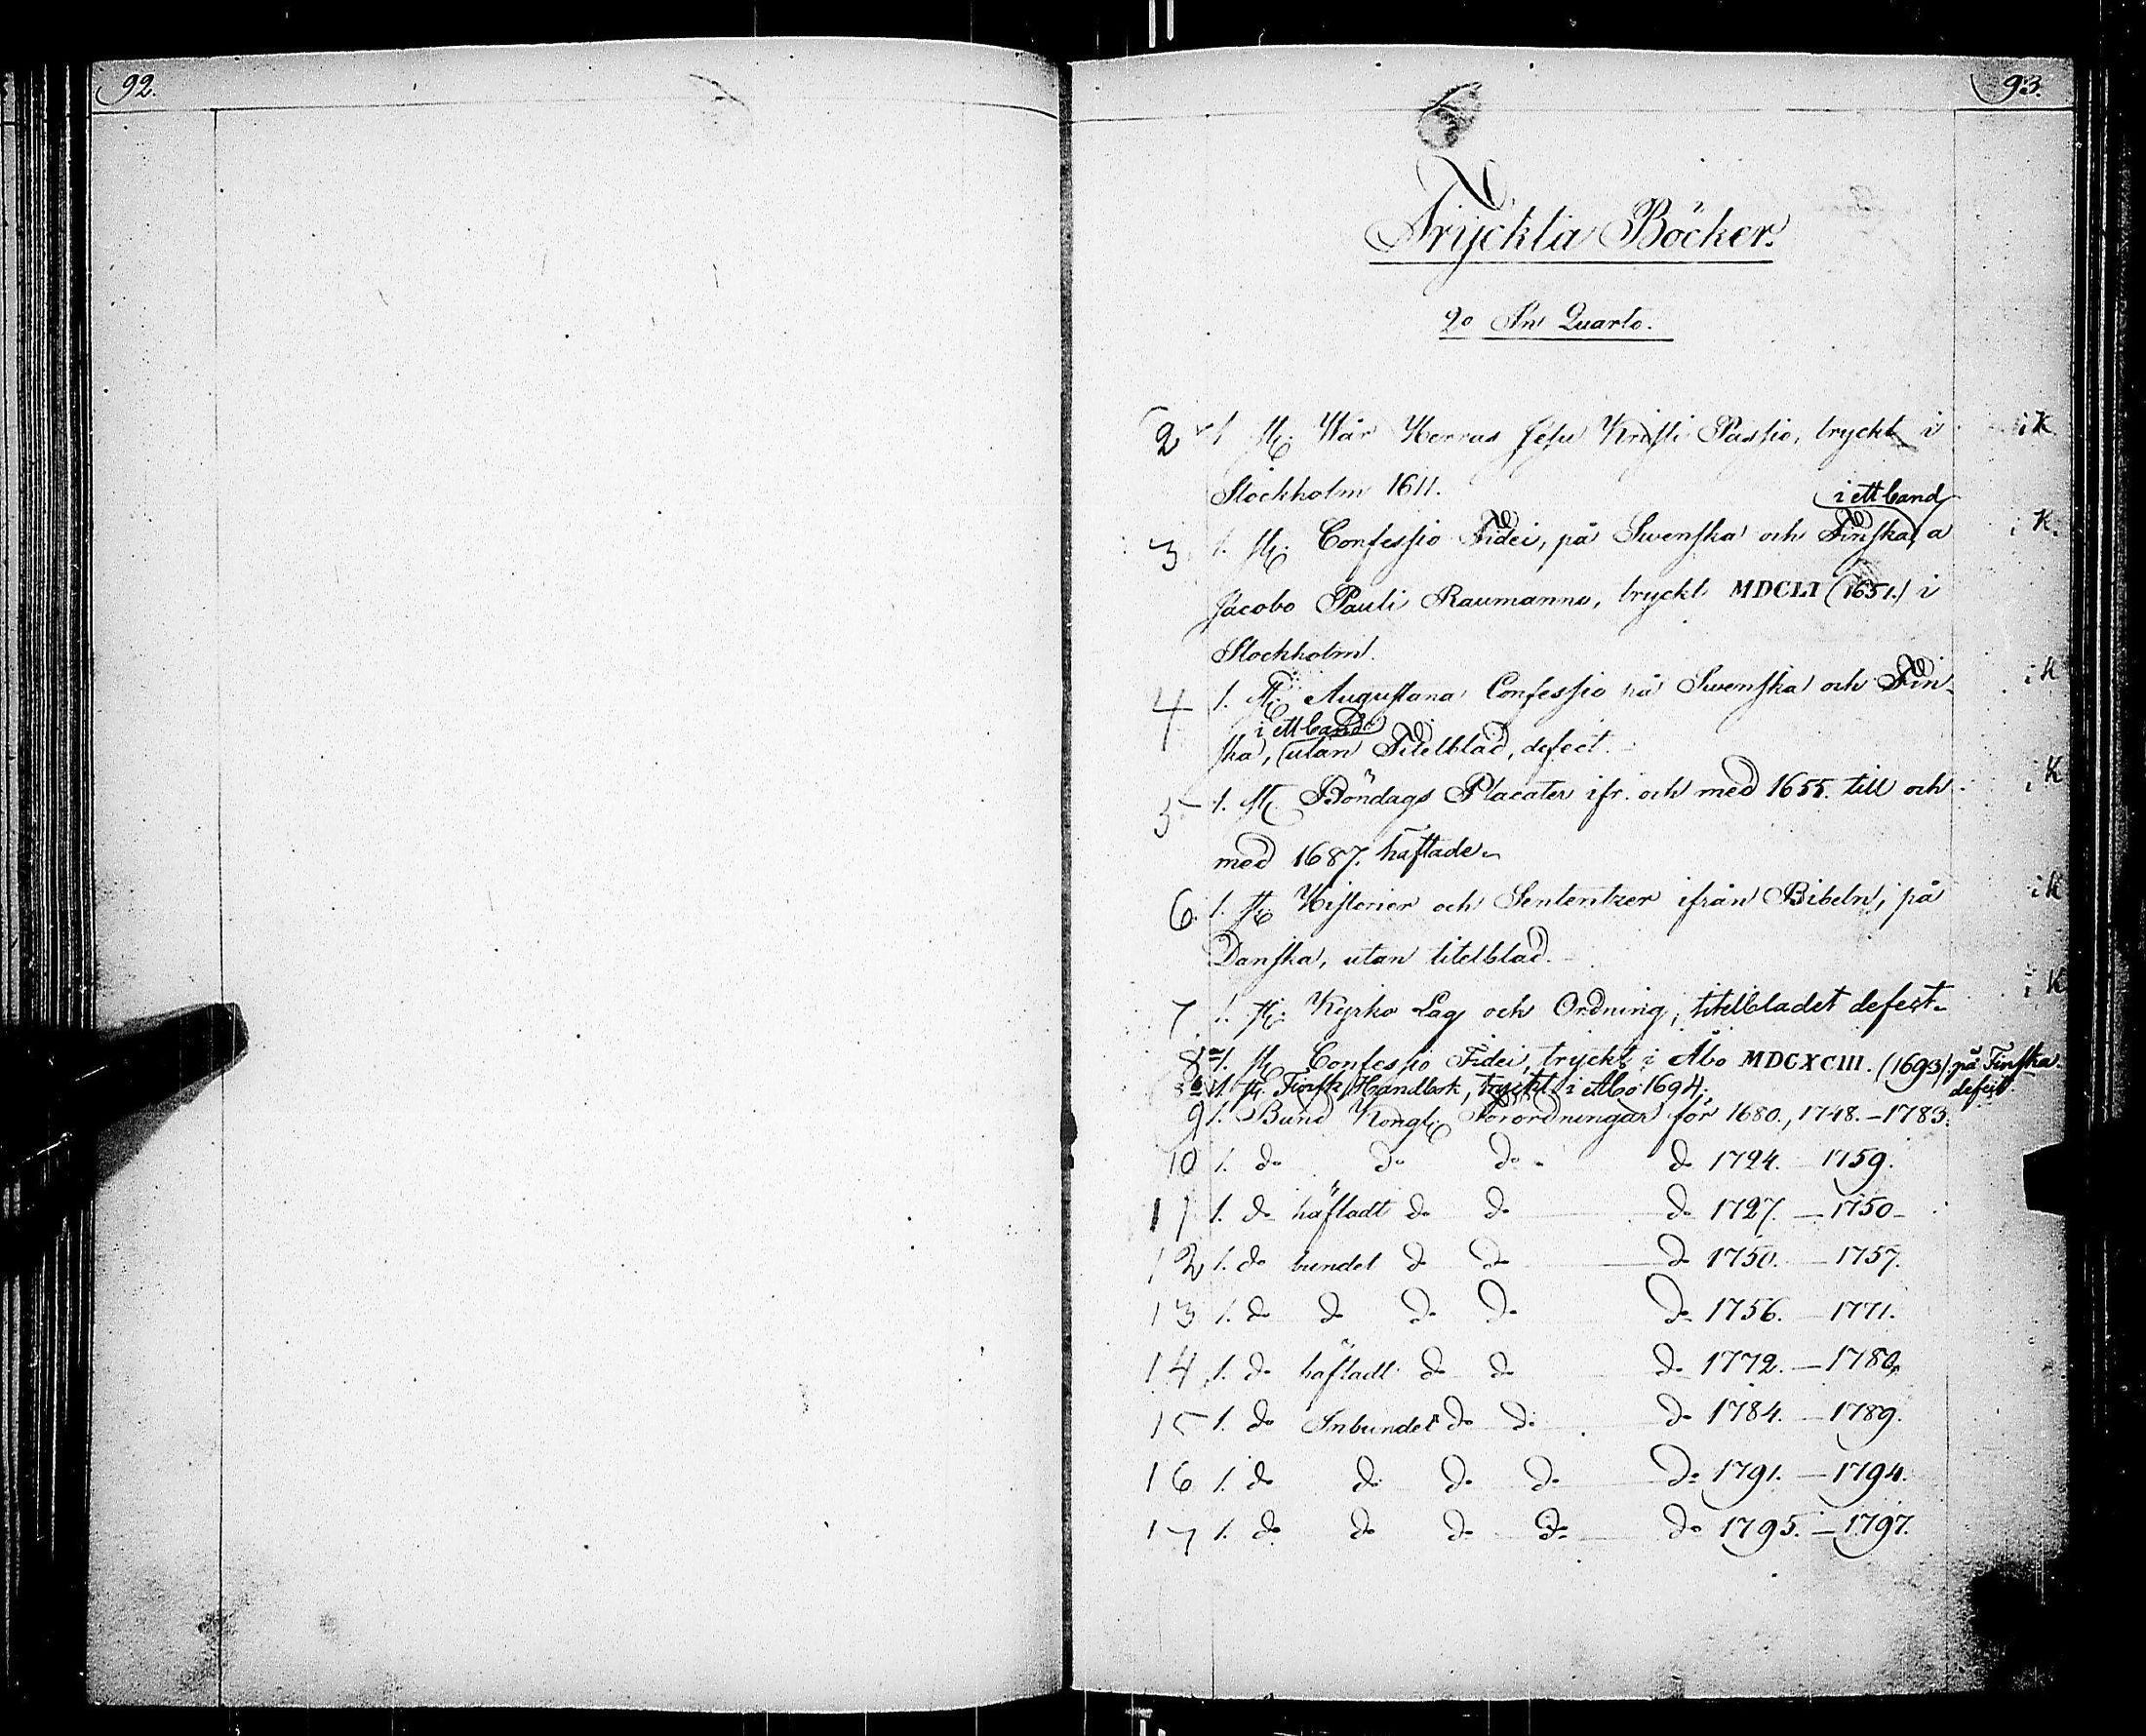 92.
93.
Tryckta Böcker.
2o In Quarto.
2 1. st. Wår Herras Jesu Kristi Passio, tryckt i i K
Stockholm 1611.
i ett band
3 1. st. Confessio Fidei, på Swenska och Finska, a i K.
Jacobo Pauli Raumanno, tryckt MDCLI (1651.) i
Stockholm.
4 1. st. Augustana Confessio på Swenska och Fin- i K
i ett band
ska, utan Titelblad, defect.
5 1. st. Böndags Placater ifr. och med 1655. till och i K
med 1687. häftade.
6. 1. st. Historier och Sententzer ifrån Bibeln, på i K
Danska, utan titelblad.
7 1. st. Kyrko Lag och Ordning, titelbladet defect. i K
8a 1. st. Confessio Fidei, tryckt i Åbo MDCXCIII. (1693) på Finska.
defect
8b 1. st. Finsk Handbok, tryckt i Åbo 1694.
9 1. Bund Kongl. Förordningar för 1680., 1748. - 1783.
10 1. do do do do 1724. - 1759.
11 1. do häftadt do do do 1727. - 1750
12 1. do bundet do do do 1750. - 1757.
13 1. do do do do do 1756. - 1771.
14 1. do häftadt do do do 1772. - 1780.
15 1. do Inbundet do do do 1784. - 1789.
16 1. do do do do do 1791. - 1794.
17 1. do do do do do 1795. - 1797.